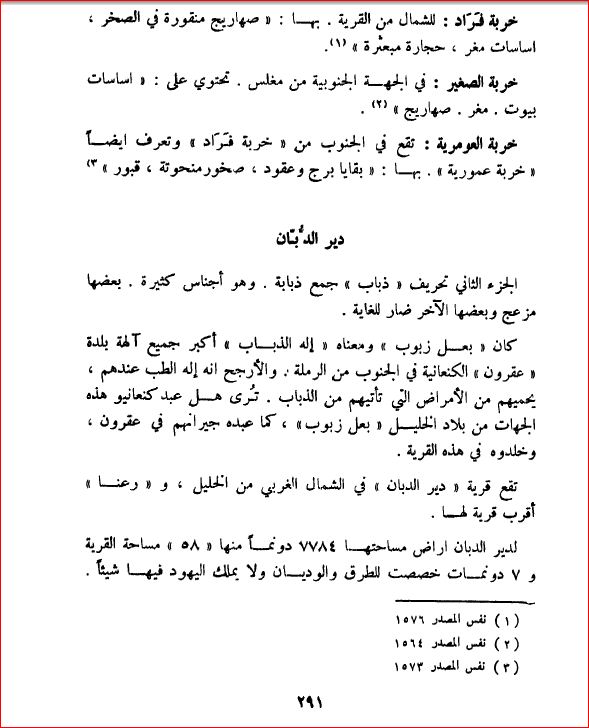 خربة فَرَاد : للشمال من القرية . بهـا : « صهاريج منقورة في الصخر ،
اساسات مغر ، حجارة مبعثرة » (١).
خربة الصغير : في الجهـة الجنوبية من مغلس . تحتوي على : « اساسات
بيوت . مغر . صهاريج » (٢) .
خربة العومرية : تقع في الجنوب من « خربة فَرَاد » وتعرف ايضـاً
« خربة عمورية » . بهـا : « بقايا برج وعقود ، صخور منحوتة ، قبور » ٣)
دير الدُّبّان
الجزء الثاني تحريف « ذباب » جمع ذبابة . وهو أجناس كثيرة . بعضها
مزعج وبعضها الآخر ضار للغاية .
كان « بعـل زبوب » ومعناه « إله الذبـاب » أكبر جميع آلهة بلدة
« عقرون » الكنعانية في الجنوب من الرملة . والأرجح انه إله الطب عندهم ،
يحميهم من الأمراض التي تأتيهم من الذباب . تُرى هـل عبد كنعانيو هذه
الجهات من بلاد الخليـل « بعل زبوب » ، كما عبده جيرانهم في عقرون ،
وخلدوه في هذه القرية .
تقع قرية « دير الدبان » في الشمال الغربي من الخليل ، و « رعنـا »
أقرب قرية لهـا .
لدير الدبان اراض مساحتهـا ٧٧٨٤ دونمـاً منها « ٥٨ » مساحة القرية
و ٧ دونمـات خصصت للطرق والوديـان ولا يملك اليهود فيهـا شيئاً .
(١) نفس المصدر ١٥٧٦
(٢) نفس المصدر ١٥٦٤
(٣) نفس المصدر ١٥٧٣
٢٩١